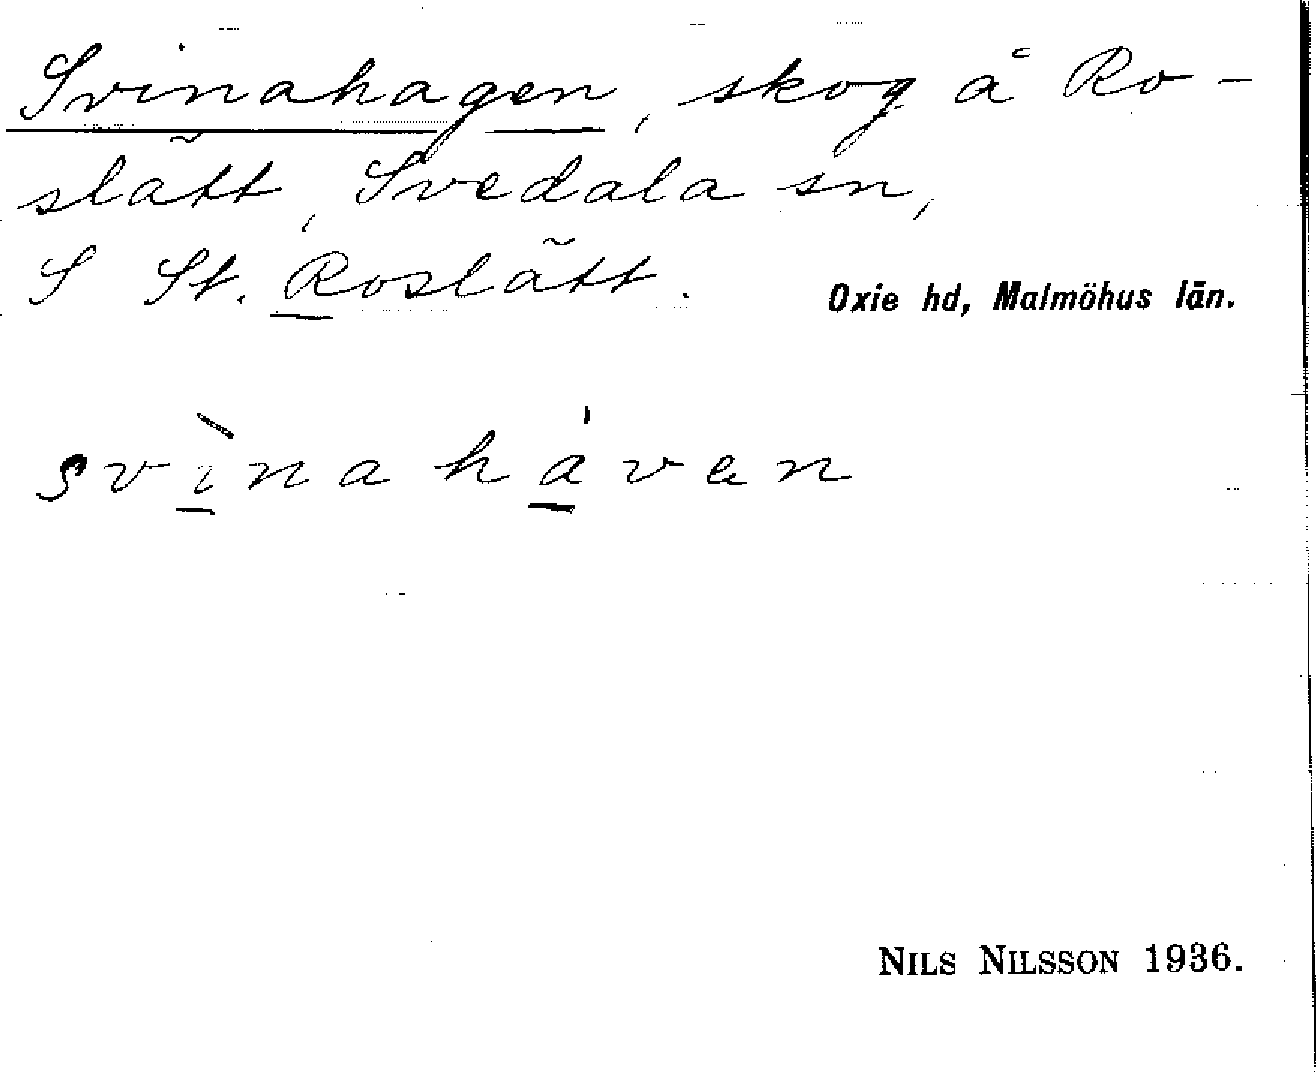 Svinahagen, skog å Ro-
slätt, Svedala sn,
S St. Roslätt.
Oxie hd, Malmöhus län.
svìnaháven
NILS NILSSON 1936.